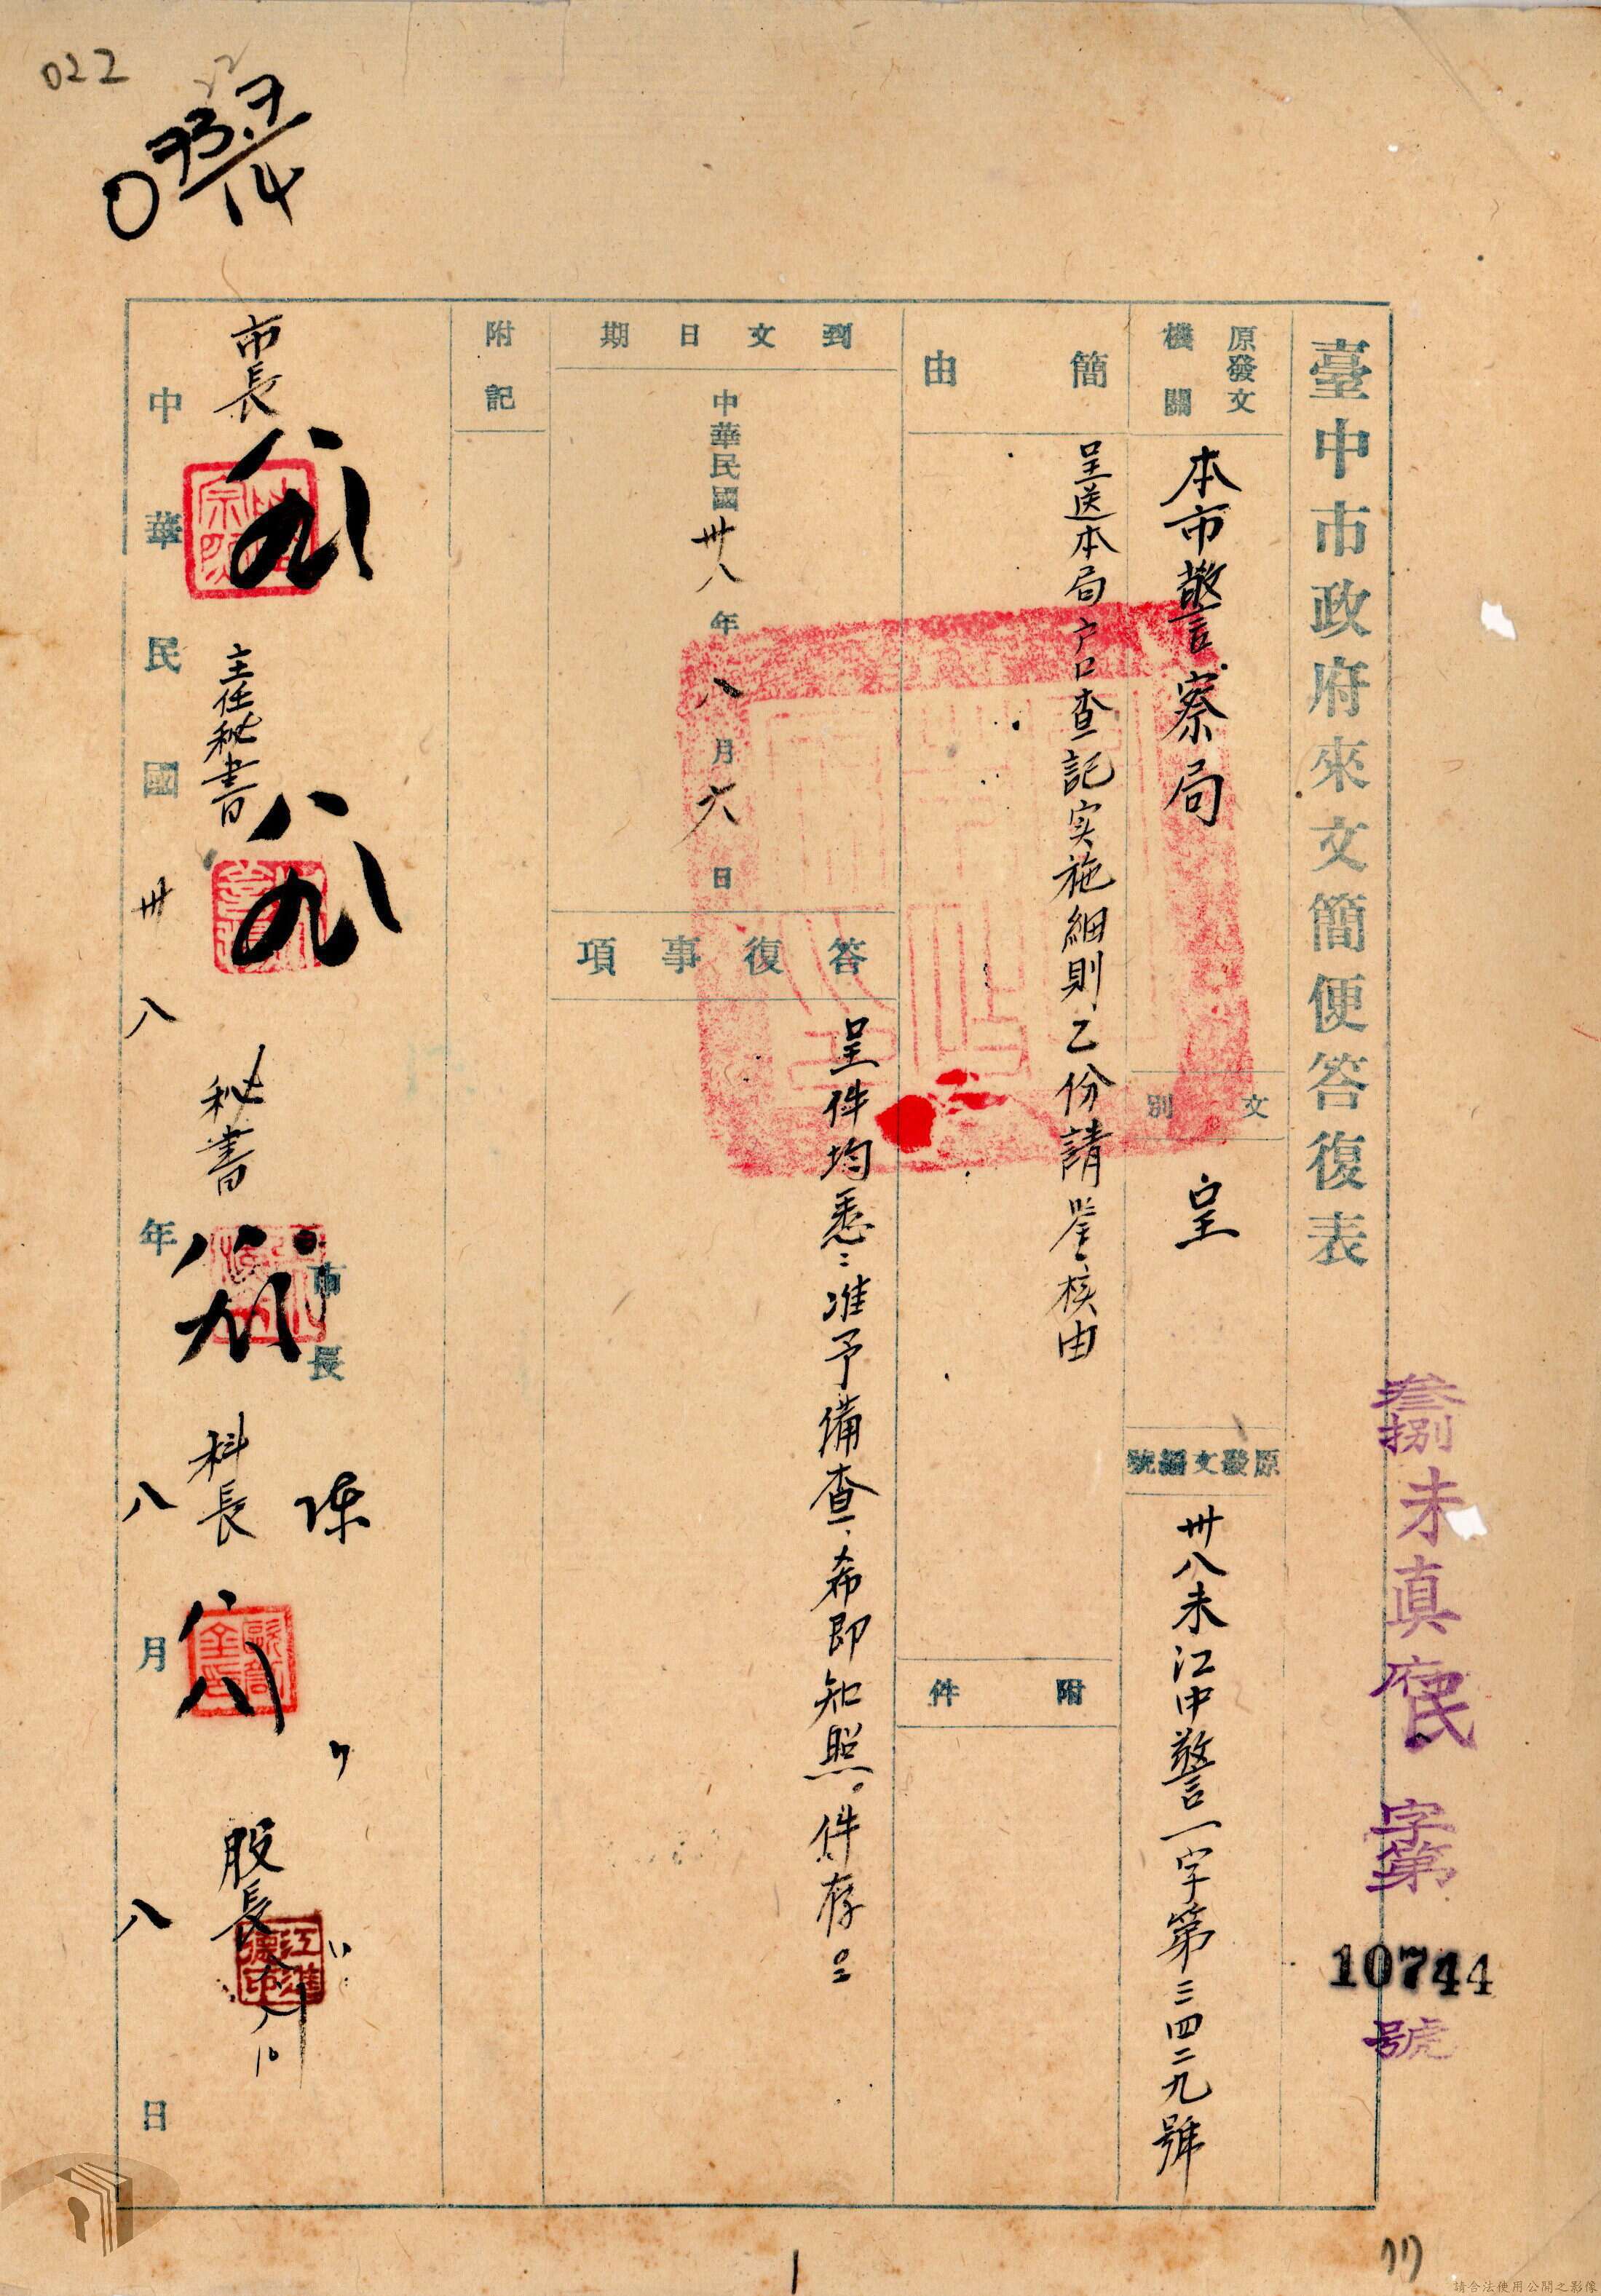 022
臺中市政府來文簡便答復表
叁捌未真府民字第10744號
原發文機關
本市警察局
文別
呈
原發文編號
卅八未江中警一字第三四二九號
簡由
呈送本局户口查記实施細則乙份請鉴核由
附件
到文日期
中華民國卅八年八月六日
答復事項
呈件均悉：准予備查，希即知照。件存。
附記
市長
中華民國卅八年八月八日
市長
主任秘書
秘書
科長
股長
請合法使用公開之影像